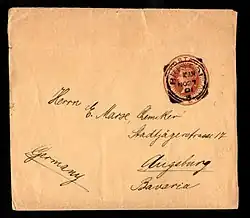 Herrn E. Marxe, Chemiker
Stadtjägerstrasse 17
Augsburg
Bavaria
Germany